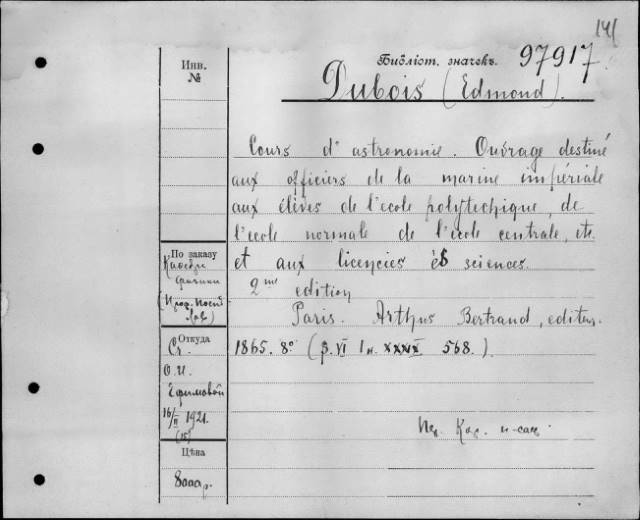 141
Библіот. значекъ. 97917.
Инв.
№
Dubois (Edmond).
Cours d'astronomie. Ouvrage destiné
aux officiers de la marine impériale
aux élèves de l'ecole polytechique, de
l'ecole normale de l'école centrale, etc
et aux licencies ès sciences.
2me edition
Paris. Arthus Bertrand, editeur.
1865. 8° (p. VI XXXIX 568.)
По заказу
Кафедры
Откуда
О.И.
Ефимовой
16/II 1921.
(15)
Цѣна
8000р.